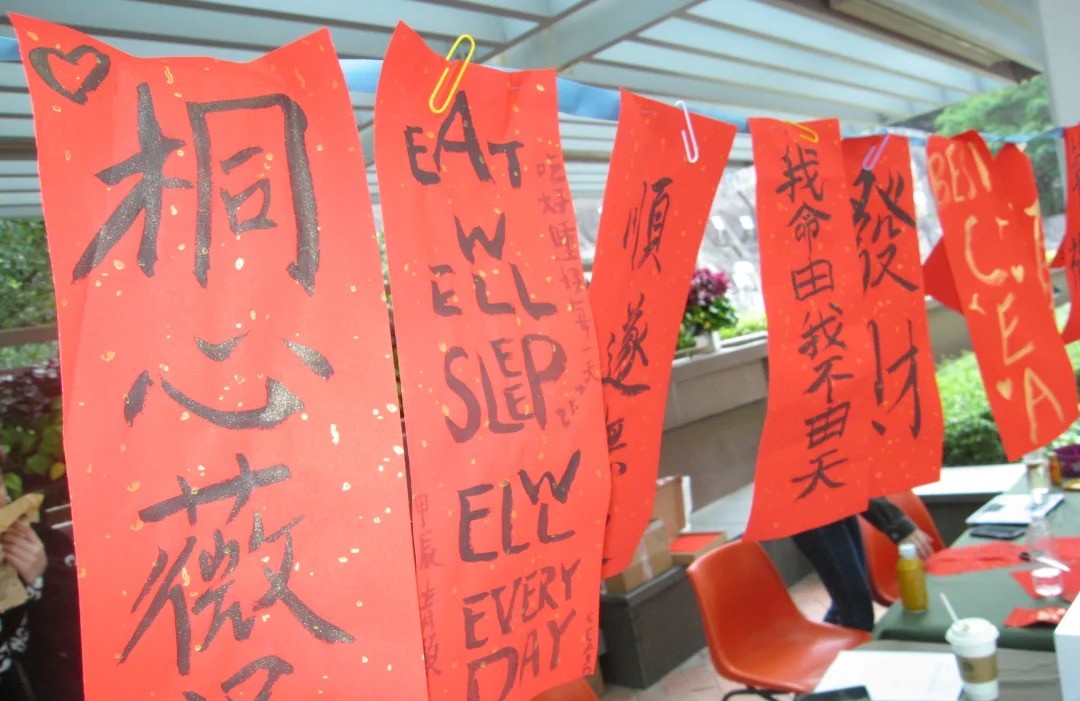 桐心薇
EAT
WELL
SLEEP
WELL
EVERY
DAY
吃好睡好每一天
甲辰
順遂
我命由我不由天
發財